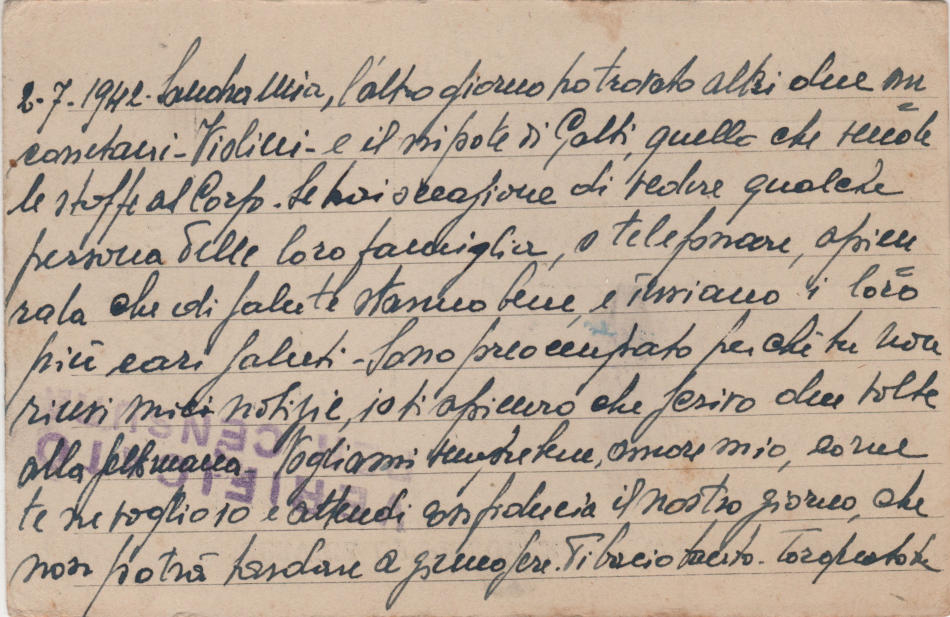 2-7-1942. Sandra mia, l'altro giorno ho trovato altri due miei
- Violini - e il nipote di Galti, quello che vende
le stoffe al Corso. Se hai occasione di vedere qualche
persona delle loro famiglia, o telefonare, assicu
rala che di salute stanno bene, e inviano i loro
più cari saluti - Sono preoccupato perché tu non
ricevi mie notizie, io ti assicuro che scrivo due volte
alla settimana. Vogliami sempre bene, amore mio, come
te ne voglio io e attendi con fiducia il nostro giorno, che
non potrà tardare a giungere. Ti bacio tanto.
VERIFICATO
CENSURA